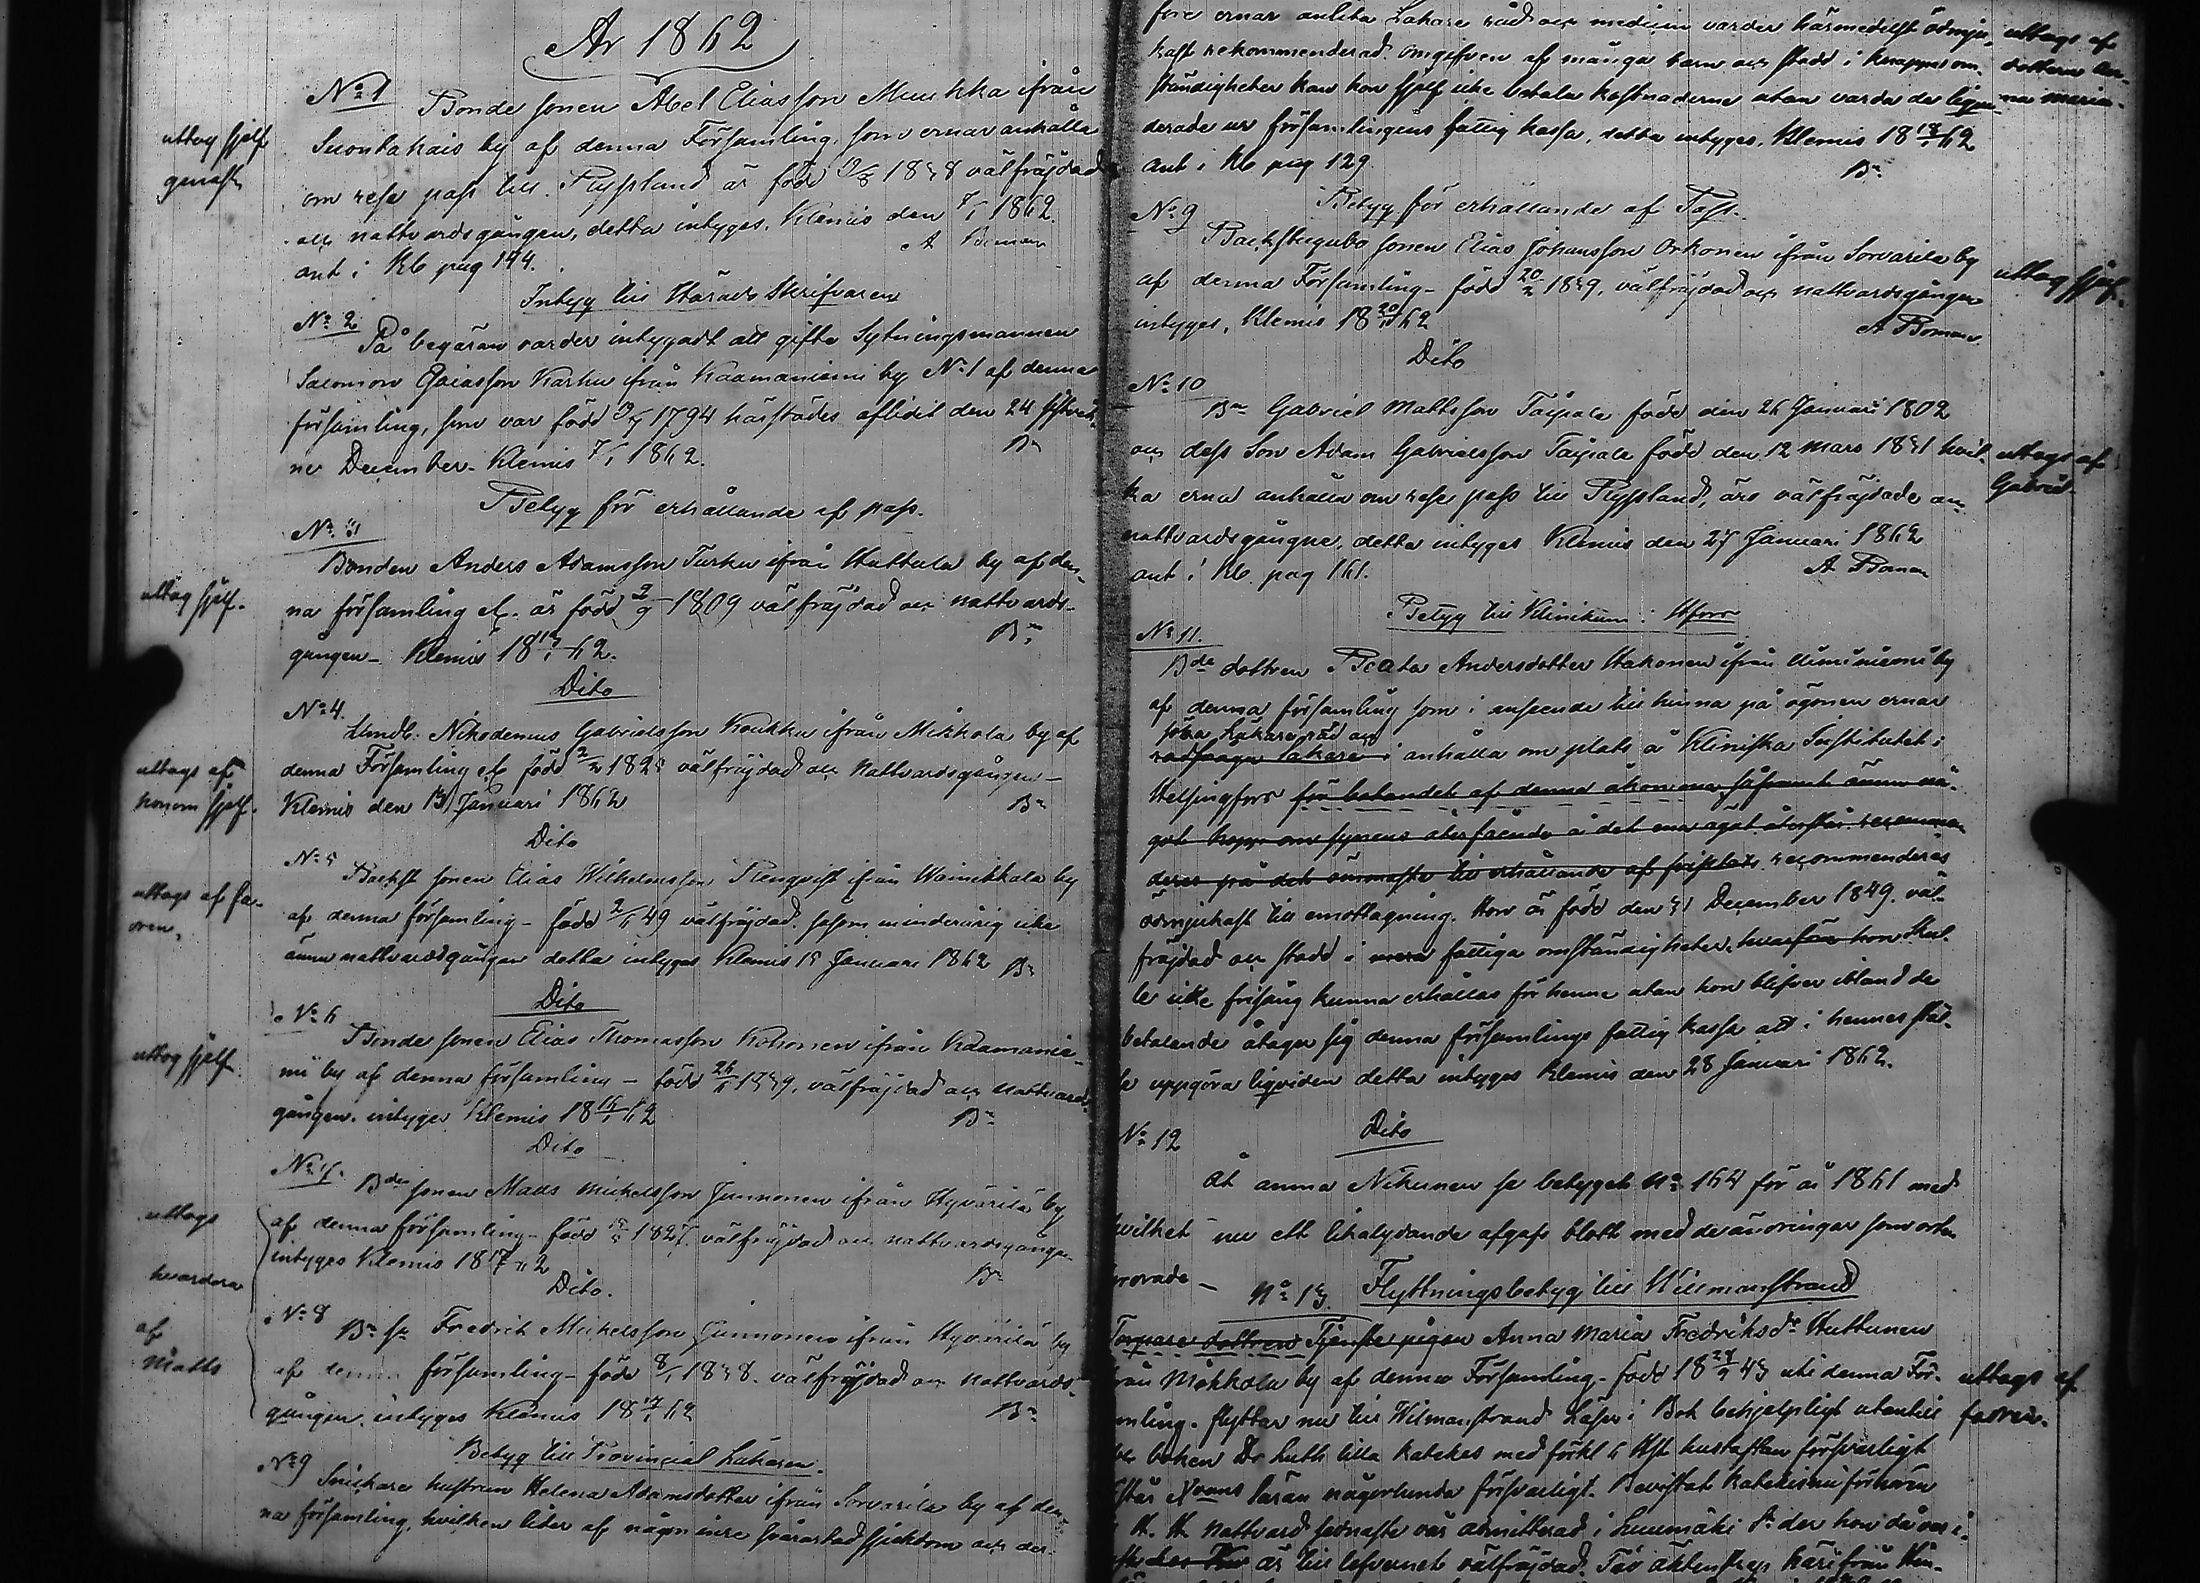 År 1862
No 1 Bonde sonen Abel Eliasson Muukka ifrån
Suontakais by af denna Församling, som ernar anhålla
om rese pass till Ryssland är född 1838 välfräjdad
och nattvardsgången, detta intygas. Klemis den 7/1 1862.
ant i Kb pag 144. A Boman
uttog sjelf
genast
Intyg till Härads Skrifvaren
No 2
På begäran varder intygadt att gifte Sytningsmannen
Salomon Eliasson Karhu ifrån Kaamaniemi by No 1 af denna
församling, som var född 1794 härstädes aflidit den 24 sistvek-
ne December. Klemis 7/1 1862. Bn
Betyg för erhållande af pass.
No 3
Bonden Anders Adamsson Turku ifrån Huttula by af den-
na församling är född 9 1809 välfräjdad och nattvards-
gången. Klemis 18 62. Bn
uttog sjelf.
Dito
No 4.
Nikodemus Gabrielsson Koukku ifrån Mikkola by af
denna Församling född 182 välfräjdad och Nattvardsgången
Klemis den 13 Januari 1862 Bn
uttogs af
honom sjelf.
Dito
No 5
Backst sonen Elias Wilhelmsson Renqvist ifrån Wainikkala by
af denna församling - född 49 välfräjdad såsom minderårig icke
ännu nattvardsgången detta intygas Klemis 15 Januari 1862 Bn
uttogs af fa-
dren.
Dito
No 6
Bonde sonen Elias Thomasson Kohonen ifrån Kaamanie-
mi by af denna församling - född 26 1839, välfräjdad och nattvards
gången. intygas Klemis 18 16/1 62 Bn
uttog sjelf.
Dito
No 7.
Bde sonen Mats Mickelsson Junnonen ifrån Hyvärilä by
af denna församling - född 1827. välfräjdad och nattvardsgången
intygas Klemis 18 17 62 Bn
uttogs
hvardera
af
Matts
Dito.
No 8
Bn sn Fredrik Mickelsson Junnonen ifrån Hyvärilä by
af denna församling - född 8/1 1838. välfräjdad och nattvards-
gången. intygas Klemis 18 17/1 62 Bn
Betyg till Provincial Läkaren.
No 9 Snickare hustrun Helena Adamsdotter ifrån Sorvarila by af den-
na församling, hvilken lider af någon inre svårartad sjukdom och der-
före ernar anlita Läkare råd och medicin varder härmedelst ödmju-
kast rekommenderad. omgifven af många barn och stadd i knappa om-
ständigheter kan hon sjelf icke betala kostnaderna utan varda de liqvi-
derade ur församlingens fattig kassa, detta intygas. Klemis 18 18/1 62
ant i Kb pag 129. Bn
uttogs af
dottern An-
na Maria.
Betyg för erhållande af Pass.
No 9
Backstugubo sonen Elias Johansson Orkonen ifrån Sorvarila by
af denna Församling - född 20 1839, välfräjdad och nattvardsgången
intygas, Klemis 18 20/1 62 A Boman.
uttog sjelf.
Dito
No 10
Bn Gabriel Mattsson Taipale född den 26 Januari 1802
och dess Son Adam Gabrielsson Taipale född den 12 Mars 1831 hvil-
ka ernar anhålla om rese pass till Ryssland, äro välfräjdade och
nattvardsgångne, detta intygas Klemis den 27 Januari 1862
ant i Kb. pag 161. A Boman
uttogs af
Gabriel.
Betyg till Klinikum i Hfors
No 11.
Bde dottren Beata Andersdotter Hakonen ifrån by
af denna församling som i anseende till hinna på ögonen ernar
söka Läkare råd och
rådfråga läkare i anhålla om plats å Kliniska Institutet i
Helsingfors för botandet af denna åkomma såframt ännu nå-
got hopp om synens återfående å det ena ögat återstår recommen
deras på det ömmaste till erhållande af friplats. recommenderas
ödmjukast till emottagning. Hon är född den 31 December 1849. väl-
fräjdad och stadd i mera fattiga omständigheter. hvarför hon Skul-
le icke frisäng kunna erhållas för henne utan hon blifver ibland de
betalande åtager sig denna församlings fattig kassa att i hennes stäl-
le uppgöra liqviden detta intygas Klemis den 28 Januari 1862.
No 12 Dito
åt Anna Nikunen se betyget No 164 för år 1861 med
hvilket nu ett likalydande afgafs blott med de ändringar som
No 13. Flyttningsbetyg till Willmanstrand
Torpare dottren Tjenste pigan Anna Maria Fredriksdr Huttunen
från Mikkola by af denna Församling - född 18 43 uti denna För-
samling. flyttar nu till Wilmanstrand Läser i Bok behjelpligt utantill
boken Dr Luth lilla katekes med förkl & Hst hustaflan försvarligt
förstår Xdoms läran någorlunda försvarligt. Bevistat katekismi förhören
H. H. Nattvard sednaste var admitterad i Luumäki der hon då var i
är till lefvernet välfräjdad. Till äktenskap härifrån
uttogs af
fadren.